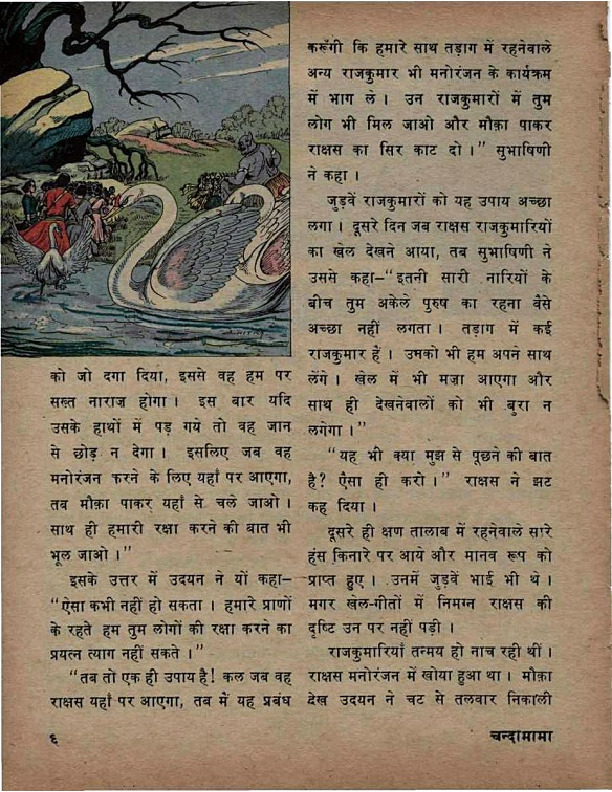 को जो दगा दिया, इससे वह हम पर
सख़्त नाराज़ होगा । इस बार यदि
उसके हाथों में पड़ गये तो वह जान
से छोड़ न देगा । इसलिए जब वह
मनोरंजन करने के लिए यहाँ पर आएगा,
तब मौक़ा पाकर यहाँ से चले जाओ ।
साथ ही हमारी रक्षा करने की बात भी
भूल जाओ ।”
इसके उत्तर में उदयन ने यों कहा–
“ऐसा कभी नहीं हो सकता । हमारे प्राणों
के रहते हम तुम लोगों की रक्षा करने का
प्रयत्न त्याग नहीं सकते ।”
“तब तो एक ही उपाय है! कल जब वह
राक्षस यहाँ पर आएगा, तब में यह प्रबंध
करूँगी कि हमारे साथ तड़ाग में रहनेवाले
अन्य राजकुमार भी मनोरंजन के कार्यक्रम
में भाग ले । उन राजकुमारों में तुम
लोग भी मिल जाओ और मौक़ा पाकर
राक्षस का सिर काट दो ।” सुभाषिणी
ने कहा ।
जुड़वें राजकुमारों को यह उपाय अच्छा
लगा । दूसरे दिन जब राक्षस राजकुमारियों
का खेल देखने आया, तब सुभाषिणी ने
उससे कहा–“इतनी सारी नारियों के
बीच तुम अकेले पुरुष का रहना वैसे
अच्छा नहीं लगता । तड़ाग में कई
राजकुमार हैं । उनको भी हम अपने साथ
लेंगे । खेल में भी मज़ा आएगा और
साथ ही देखनेवालों को भी बुरा न
लगेगा ।”
“यह भी क्या मुझ से पूछने की बात
है? ऐसा ही करो ।” राक्षस ने झट
कह दिया ।
दूसरे ही क्षण तालाब में रहनेवाले सारे
हंस किनारे पर आये और मानव रूप को
प्राप्त हुए । उनमें जुड़वें भाई भी थे ।
मगर खेल-गीतों में निमग्न राक्षस की
दृष्टि उन पर नहीं पड़ी ।
राजकुमारियाँ तन्मय हो नाच रही थीं ।
राक्षस मनोरंजन में खोया हुआ था । मौक़ा
देख उदयन ने चट से तलवार निकाली
६
चन्दामामा